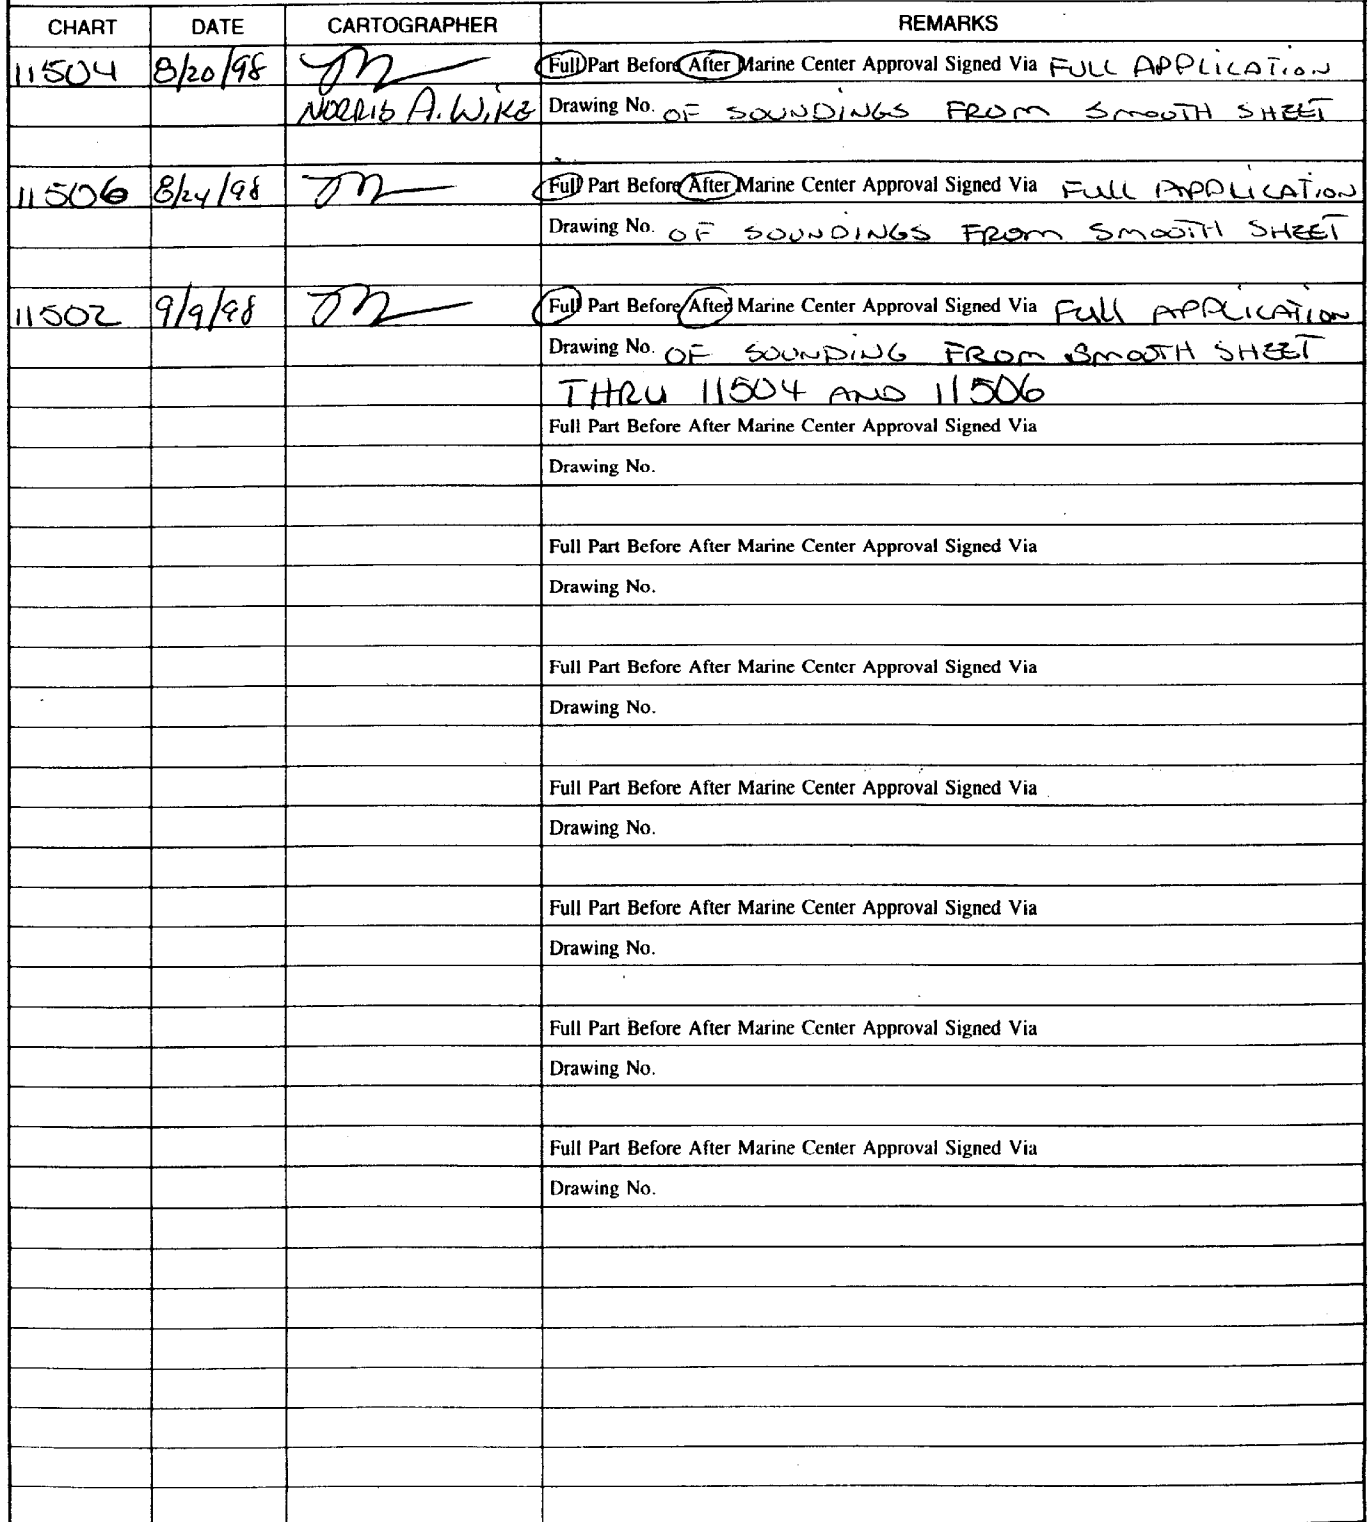 CHART DATE CARTOGRAPHER REMARKS
11504 8/20/98 Full Part Before After Marine Center Approval Signed Via FULL APPLICATION
NORRIS A. WIKE Drawing No. OF SOUNDINGS FROM SMOOTH SHEET
11506 8/24/98 Full Part Before After Marine Center Approval Signed Via FULL APPLICATION
Drawing No. OF SOUNDINGS FROM SMOOTH SHEET
11502 9/9/98 Full Part Before After Marine Center Approval Signed Via FULL APPLICATION
Drawing No. OF SOUNDING FROM SMOOTH SHEET
THRU 11504 AND 11506
Full Part Before After Marine Center Approval Signed Via
Drawing No.
Full Part Before After Marine Center Approval Signed Via
Drawing No.
Full Part Before After Marine Center Approval Signed Via
Drawing No.
Full Part Before After Marine Center Approval Signed Via
Drawing No.
Full Part Before After Marine Center Approval Signed Via
Drawing No.
Full Part Before After Marine Center Approval Signed Via
Drawing No.
Full Part Before After Marine Center Approval Signed Via
Drawing No.